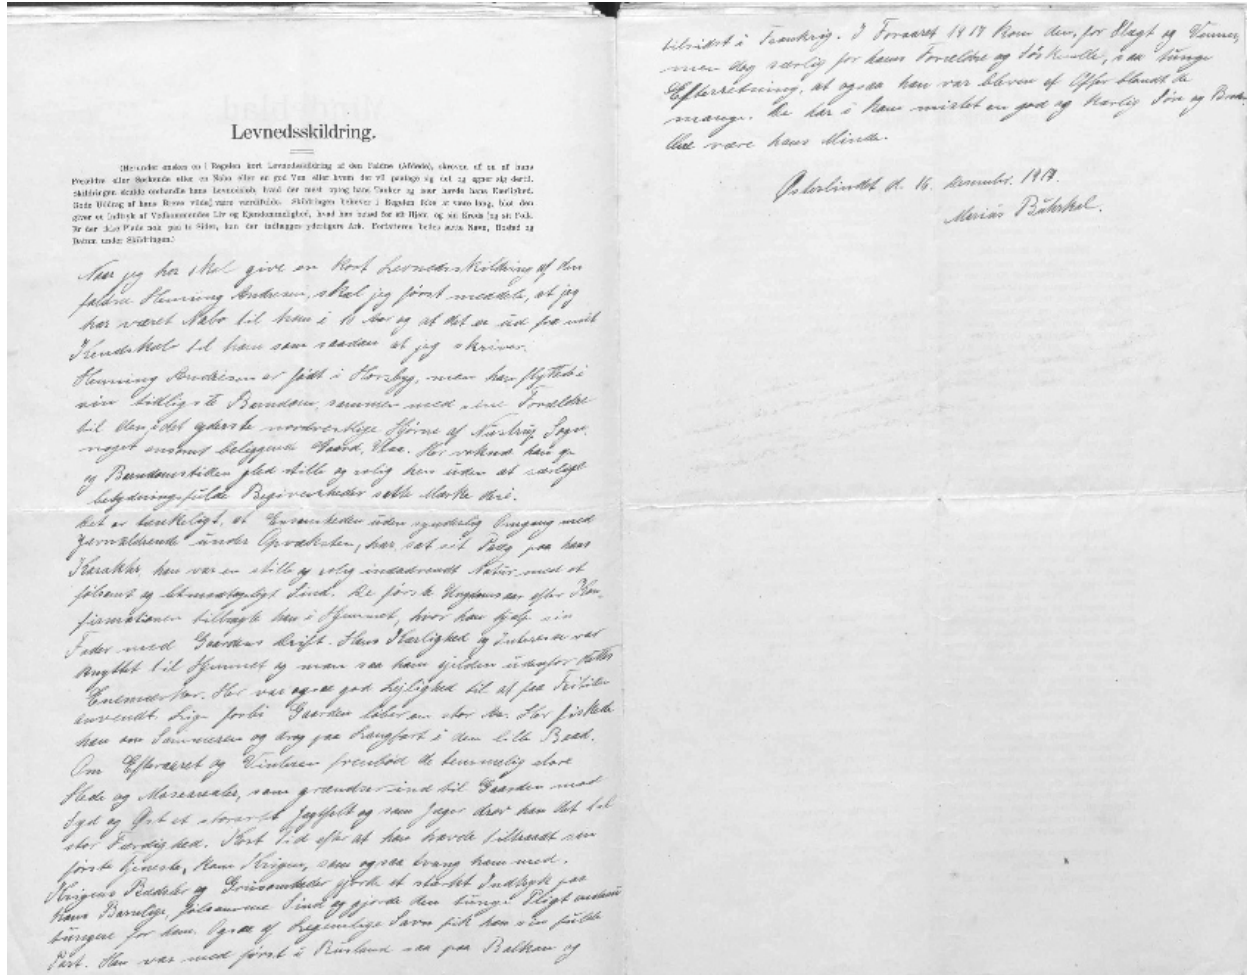 Levnedsskildring.
(Herunder ønskes en i Regelen kort Levnedsskildring af den Faldne (Afdøde), skreven af en af hans
Forældre eller Søskende eller en Nabo eller en god Ven eller hvem der vil paatage sig det og egner sig dertil.
Skildringen skulde omhandle hans Levnedsløb, hvad der mest optog hans Tanker og især havde hans Kærlighed.
Gode Uddrag af hans Breve vilde være værdifulde. Skildringen behøver i Regelen ikke at være lang, blot den
giver et Indtryk af Vedkommendes Liv og Ejendommelighed, hvad han betød for sit Hjem og sin Kreds og sit Folk.
Er der ikke Plads nok paa to Sider, kan der indlægges yderligere Ark. Forfatteren bedes sætte Navn, Bosted og
Datum under Skildringen.)
Naar jeg her skal give en kort Levnedsskildring af den
faldne Henning Andresen, skal jeg først meddele, at jeg
har været Nabo til ham i 10 Aar og at det er ud fra mit
Kendskab til ham som saadan at jeg skriver.
Henning Andresen er født i Horsbyg, men han flyttede i
sin tidligste Barndom sammen med sine Forældre
til den i det yderste nordvestlige Hjørne af Nustrup Sogn
noget ensomt beliggende Gaard, Her voksede han op
og Barndomstiden gled stille og rolig hen uden at særlige
betydningsfulde Begivenheder satte Mærke deri.
Det er tænkeligt, at Ensomheden uden synderlig Omgang med
Jævnaldrende under Opvæksten, har sat sit Præg paa hans
Karakter, han var en stille og rolig indadvendt Natur med et
følsomt og letmodtageligt Sind. De første Ungdomsaar efter Kon-
firmationen tilbragte han i Hjemmet, hvor han hjalp sin
Fader med Gaardens Drift. Hans Kærlighed og Interesse var
knyttet til Hjemmet og man saa ham sjelden udenfor dettes
Enemærker. Her var ogsaa god Lejlighed til at faa Fritiden
anvendt. Lige forbi Gaarden løber en stor Aa. Her fiskede
han om Sommeren og drog paa Langfart i den lille Baad.
Om Efteraaret og Vinteren frembød de temmelig store
Hede og Mosearealer, som grændser ind til Gaarden mod
Syd og Øst et Jagtfelt og som Jæger drev han det til
stor Færdighed. Kort Tid efter at han havde tiltraadt sin
første Tjeneste, kom Krigen, som ogsaa tvang ham med.
Krigens Rædsler og Grusomheder gjorde et stærkt Indtryk paa
hans Barnlige, følsomme Sind og gjorde den tunge Pligt endnu
tungere for ham. Ogsaa af Legemlige Savn fik han sin fulde
Part. Han var med først i Rusland saa paa Balkan og
tilsidst i Frankrig. I Foraaret 1917 kom den, for Slægt og Venner,
men dog særlig for hans Forældre og Søskende, saa tunge
Efterretning, at ogsaa han var bleven et Offer blandt de
mange. De har i ham mistet en god og kærlig Søn og Broder.
Ære være hans Minde.
Østerlindet d. 16. December.
Marius Buhrkal.